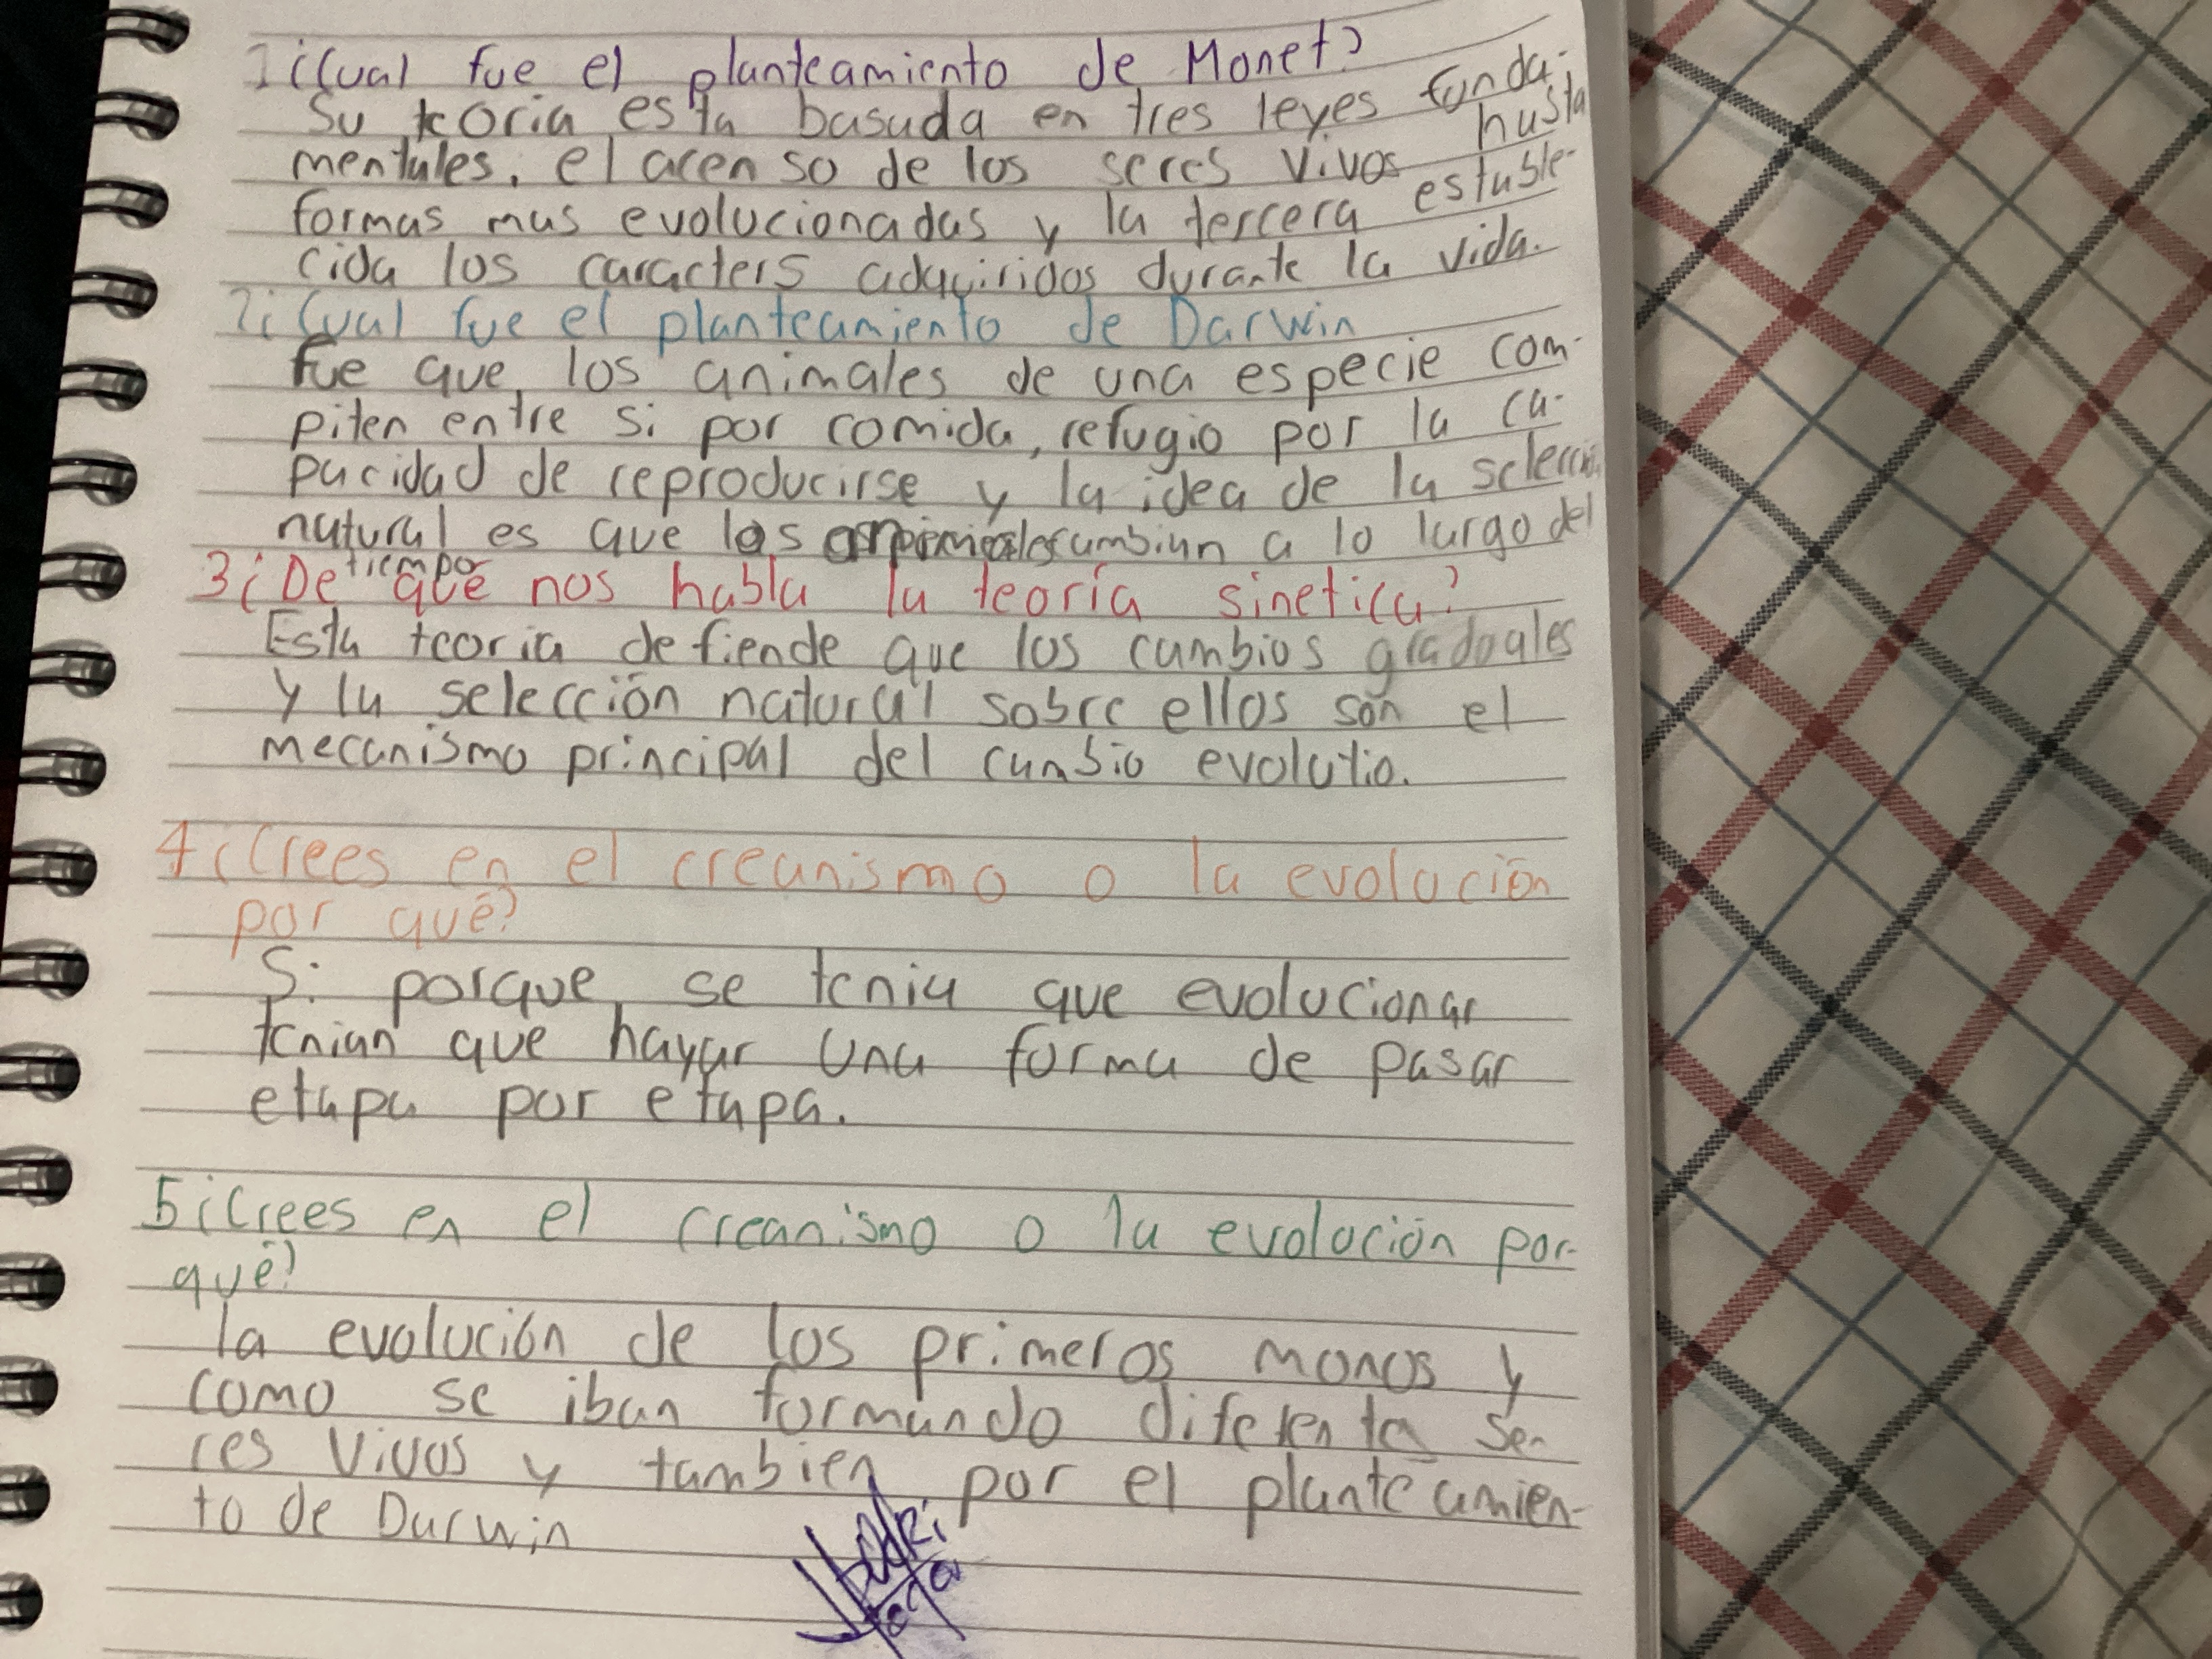 1¿Cual fue el planteamiento de Monet?
Su teoria esta basada en tres leyes funda-
mentales. el acenso de los seres vivos hasta
formas mas evolucionadas y la tercera estable-
cida los caracters adquiridos durante la vida.
2¿Cual fue el planteamiento de Darwin
fue que los animales de una especie com-
piten entre si por comida, refugio por la ca-
pacidad de reproducirse y la idea de la selección
natural es que los animales cambian a lo largo del
tiempo
3¿De que nos habla la teoría sinetica?
Esta teoria defiende que los cambios gradoales
y la selección natural sobre ellos son el
mecanismo principal del cambio evolutio.
4¿Crees en el creanismo o la evolución
por qué?
Si porque se tenia que evolucionar
tenian que hayar una forma de pasar
etapa por etapa.
5¿Crees en el creanismo o la evolución por-
qué?
la evolución de los primeros monos y
como se iban formando diferents se-
res vivos y tambien por el planteamien-
to de Darwin